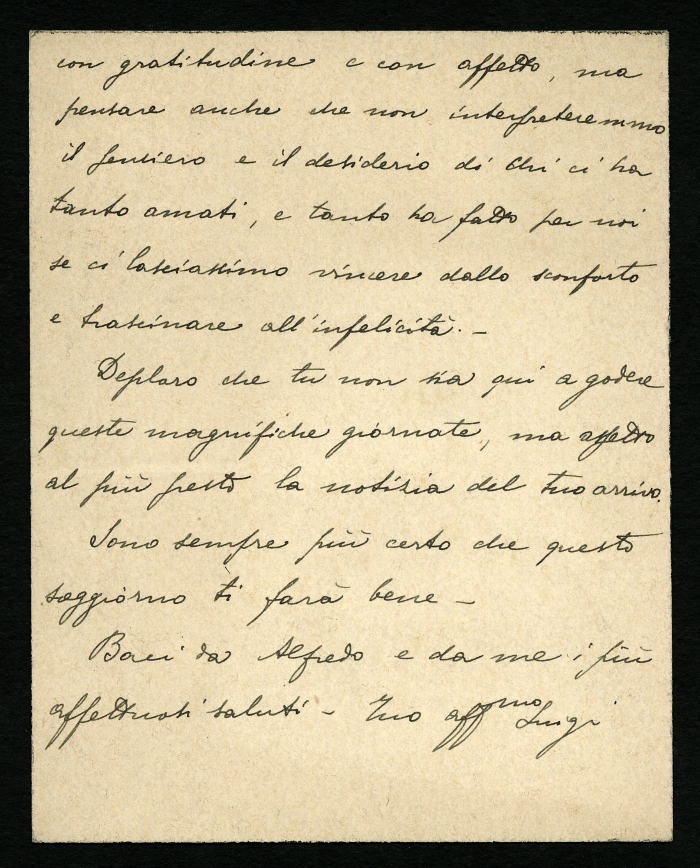 con gratitudine e con affetto, ma
pensare anche che non interpreteremmo
il pensiero e il desiderio di chi ci ha
tanto amati, e tanto ha fatto per noi
se ci lasciassimo vincere dallo sconforto
e trascinare all'infelicità. -
Deploro che tu non sia qui a godere
queste magnifiche giornate, ma aspetto
al più presto la notizia del tuo arrivo.
Sono sempre più certo che questo
soggiorno ti farà bene -
Baci da Alfredo e da me i più
affettuosi saluti - Tuo affmo Luigi